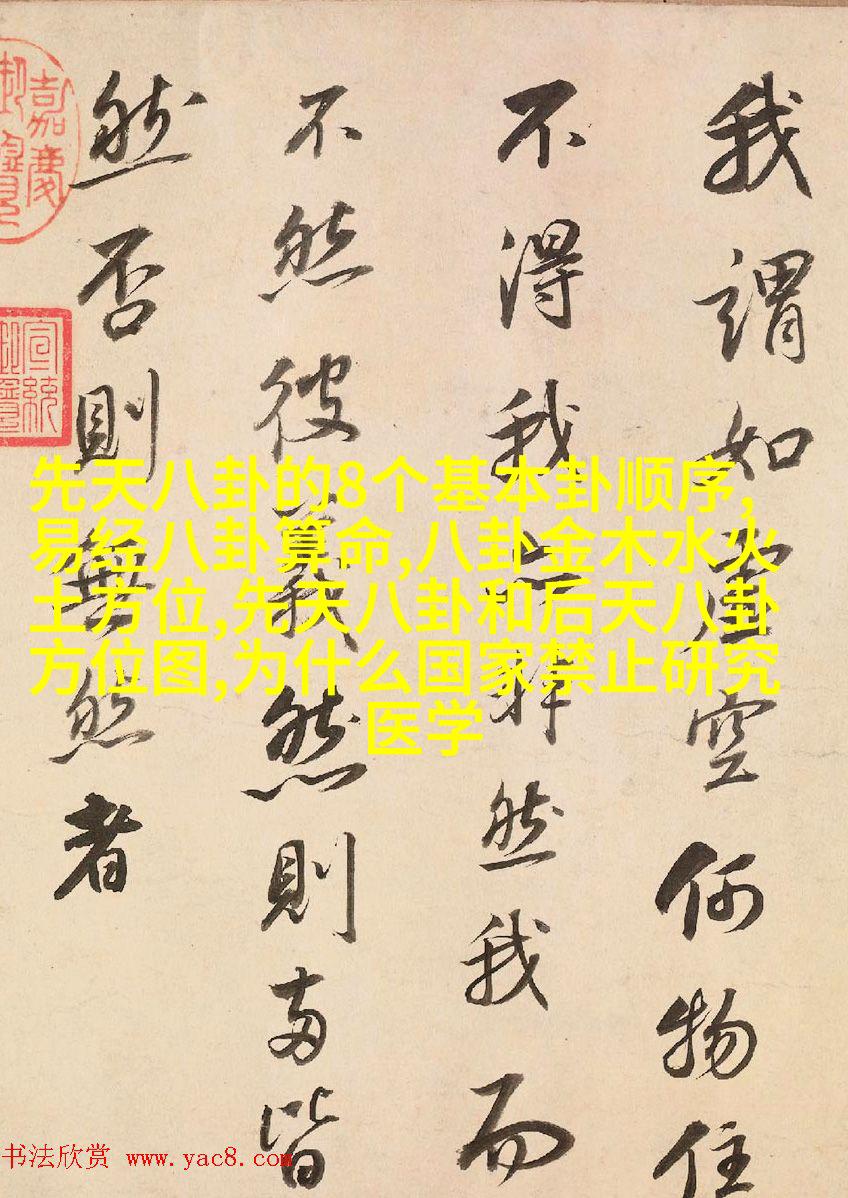 我謂如虛空何物住
不得我然我而
不然彼我然則両皆
然否則無然者
嘉慶
宣統
先天八卦的8个基本卦顺序,
易经八卦算命,八卦金木水火
土方位,先天八卦和后天八卦
方位图,为什么国家禁止研究
医学
书法欣赏 www.yac8.com